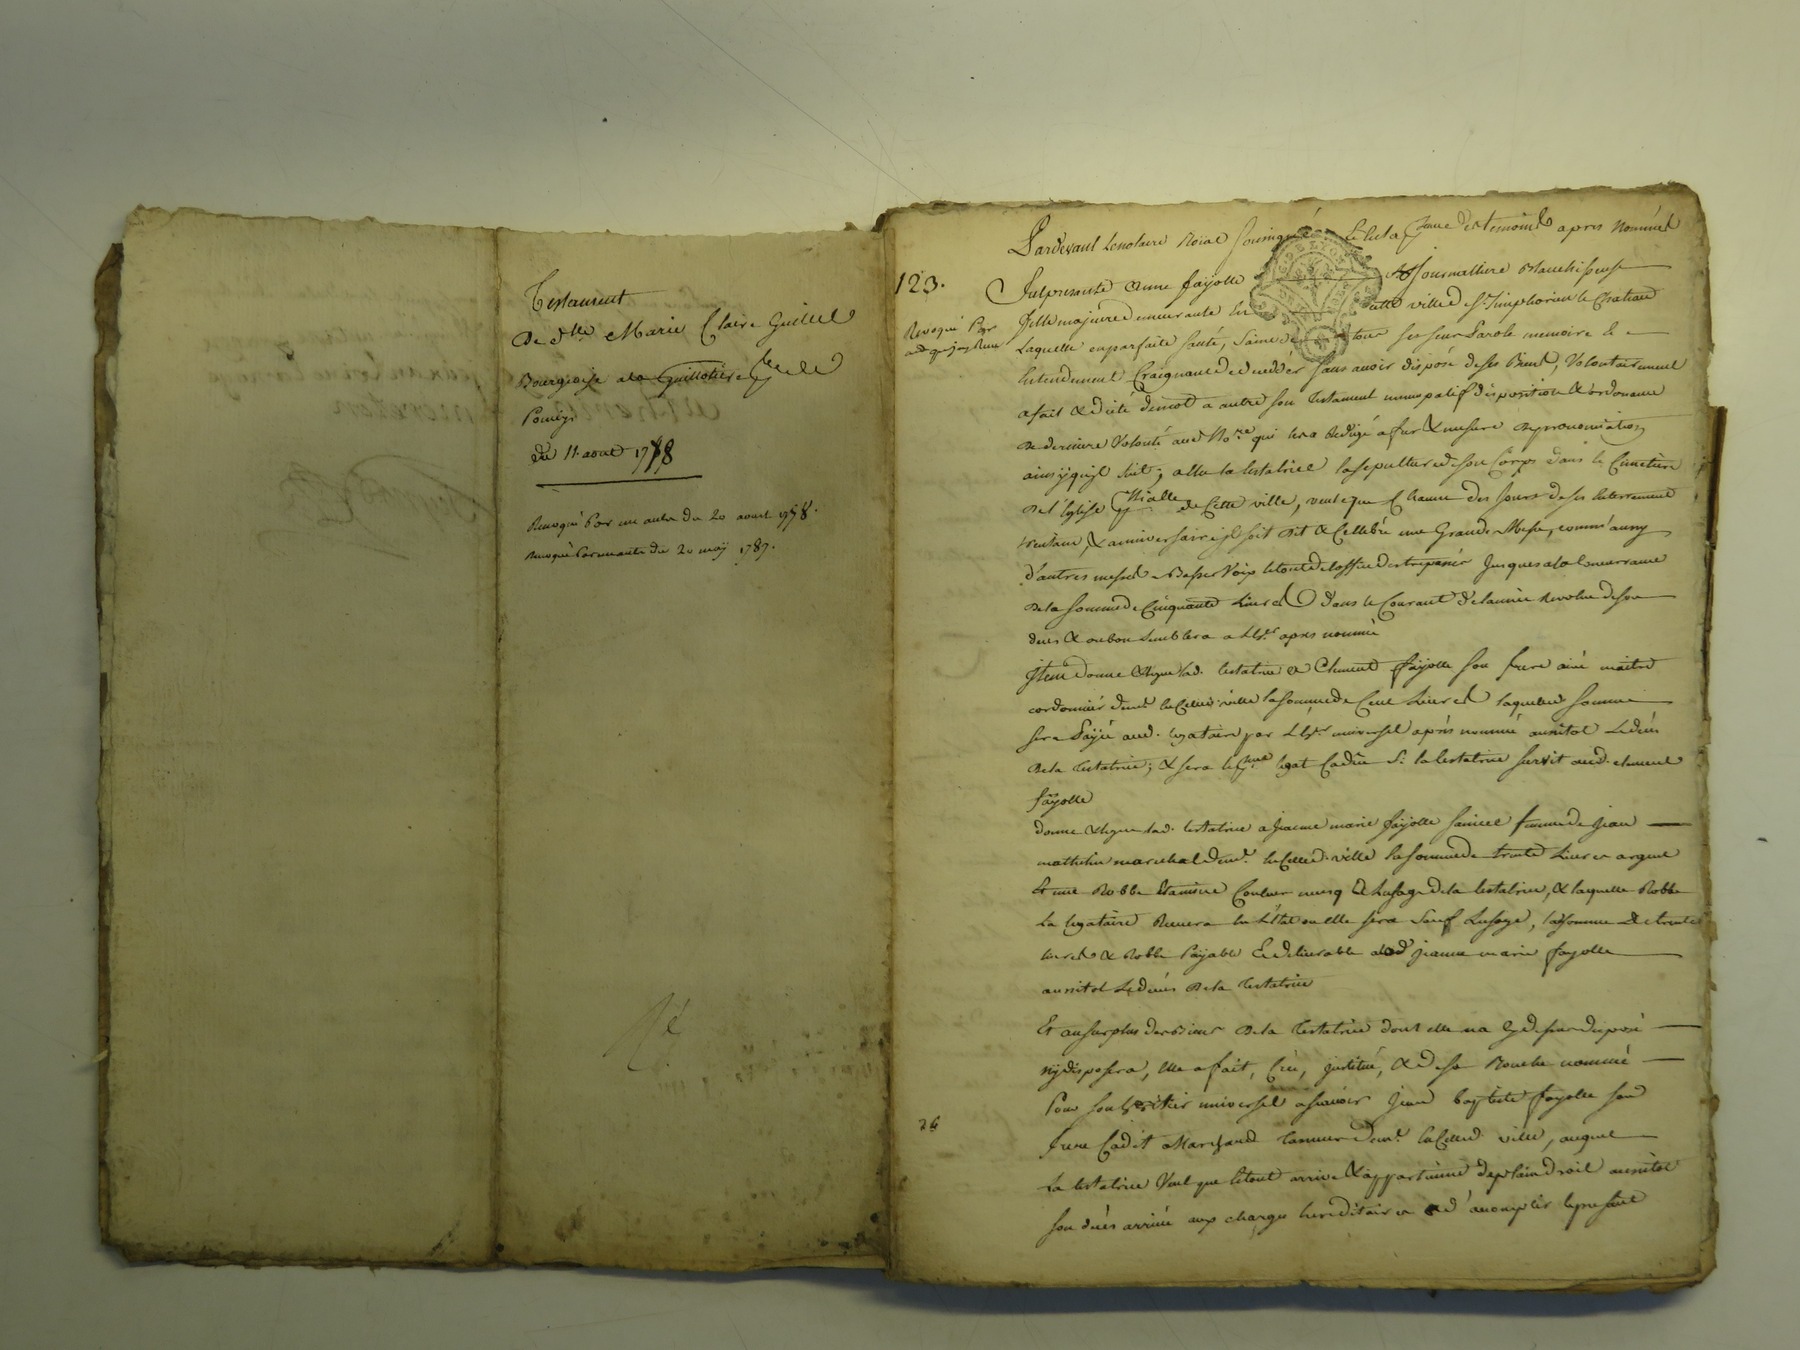 Testament
De dlle Marie Claire Guillet
Bourgeoise
du 11 aout 1778
Revoqué Par un autre du 20 aoust 1778.
Revoqué Par un autre du 20 may 1787.
123.
Revoqué Par
Pardevant Le notaire Roïal soussigné et temoins apres nommés
fut presente anne fayolle journalliere Blanchisseuse
fille majeure demeurante en ville de St. Simphorien le Chateau
Laquelle en parfaite santé, saine de ses sens Parole memoire &
Entendement Craignant de deceder sans avoir disposé de ses Biens, Volontairement
a fait & dicté de mot a autre son testament nuncupatif disposition & ordonance
De derniere Volonté aud No.re qui l'a redigé a fur & mesure de prononciation
ainsy qu'il suit; a Elu la testatrice la sepulture de son Corps dans le Cimetiere
De l'Eglise de Cette ville, veut que chacun des jours de ses Enterrement
trentaine, & anniversaire il soit Dit & Cellebré une Grande Messe, comm'aussy
d'autres messes a Basse Voix jusques a la Concurrance
De la somme de Cinquante Livres dans le Courant de l'année revolue de son
deces & ou bon semblera a apres nommé
Item donne & legue lad. testatrice a Clement fayolle son frere ainé maitre
cordonnier dem.t en Cetted. ville la somme de Cent Livres laquelle somme
sera Payée aud. legataire par universel après nommé aussitot Le deces
De la testatrice; & sera le legat Caduc Si la testatrice survit aud. clement
fayolle
donne & legue lad. testatrice a jeanne marie fayolle femme de jean
mathelin marechal dem.t en Cetted. ville la somme de trente Livres argent
Et une Robbe Etamine Couleur De l'usage de la testatrice, & laquelle Robbe
La legataire en L'Etat ou elle sera Sauf L'usage, la somme De trente
Livres & Robbe Payable & delivrable a lad. jeanne marie fayolle
aussitot Le deces De la testatrice
Et au surplus des biens De la testatrice dont elle n'a disposé
ny disposera, elle a fait, Créé, institué, & de sa Bouche nommé
Pour son heritier universel a scavoir jean baptiste fayolle son
frere Cadet Marchand tanneur dem.t en Cetted. ville, auquel
La testatrice Veut que le tout arrive & appartienne de plain droit aussitot
son deces arrivé aux charges hereditaires & d'accomplir le present
26